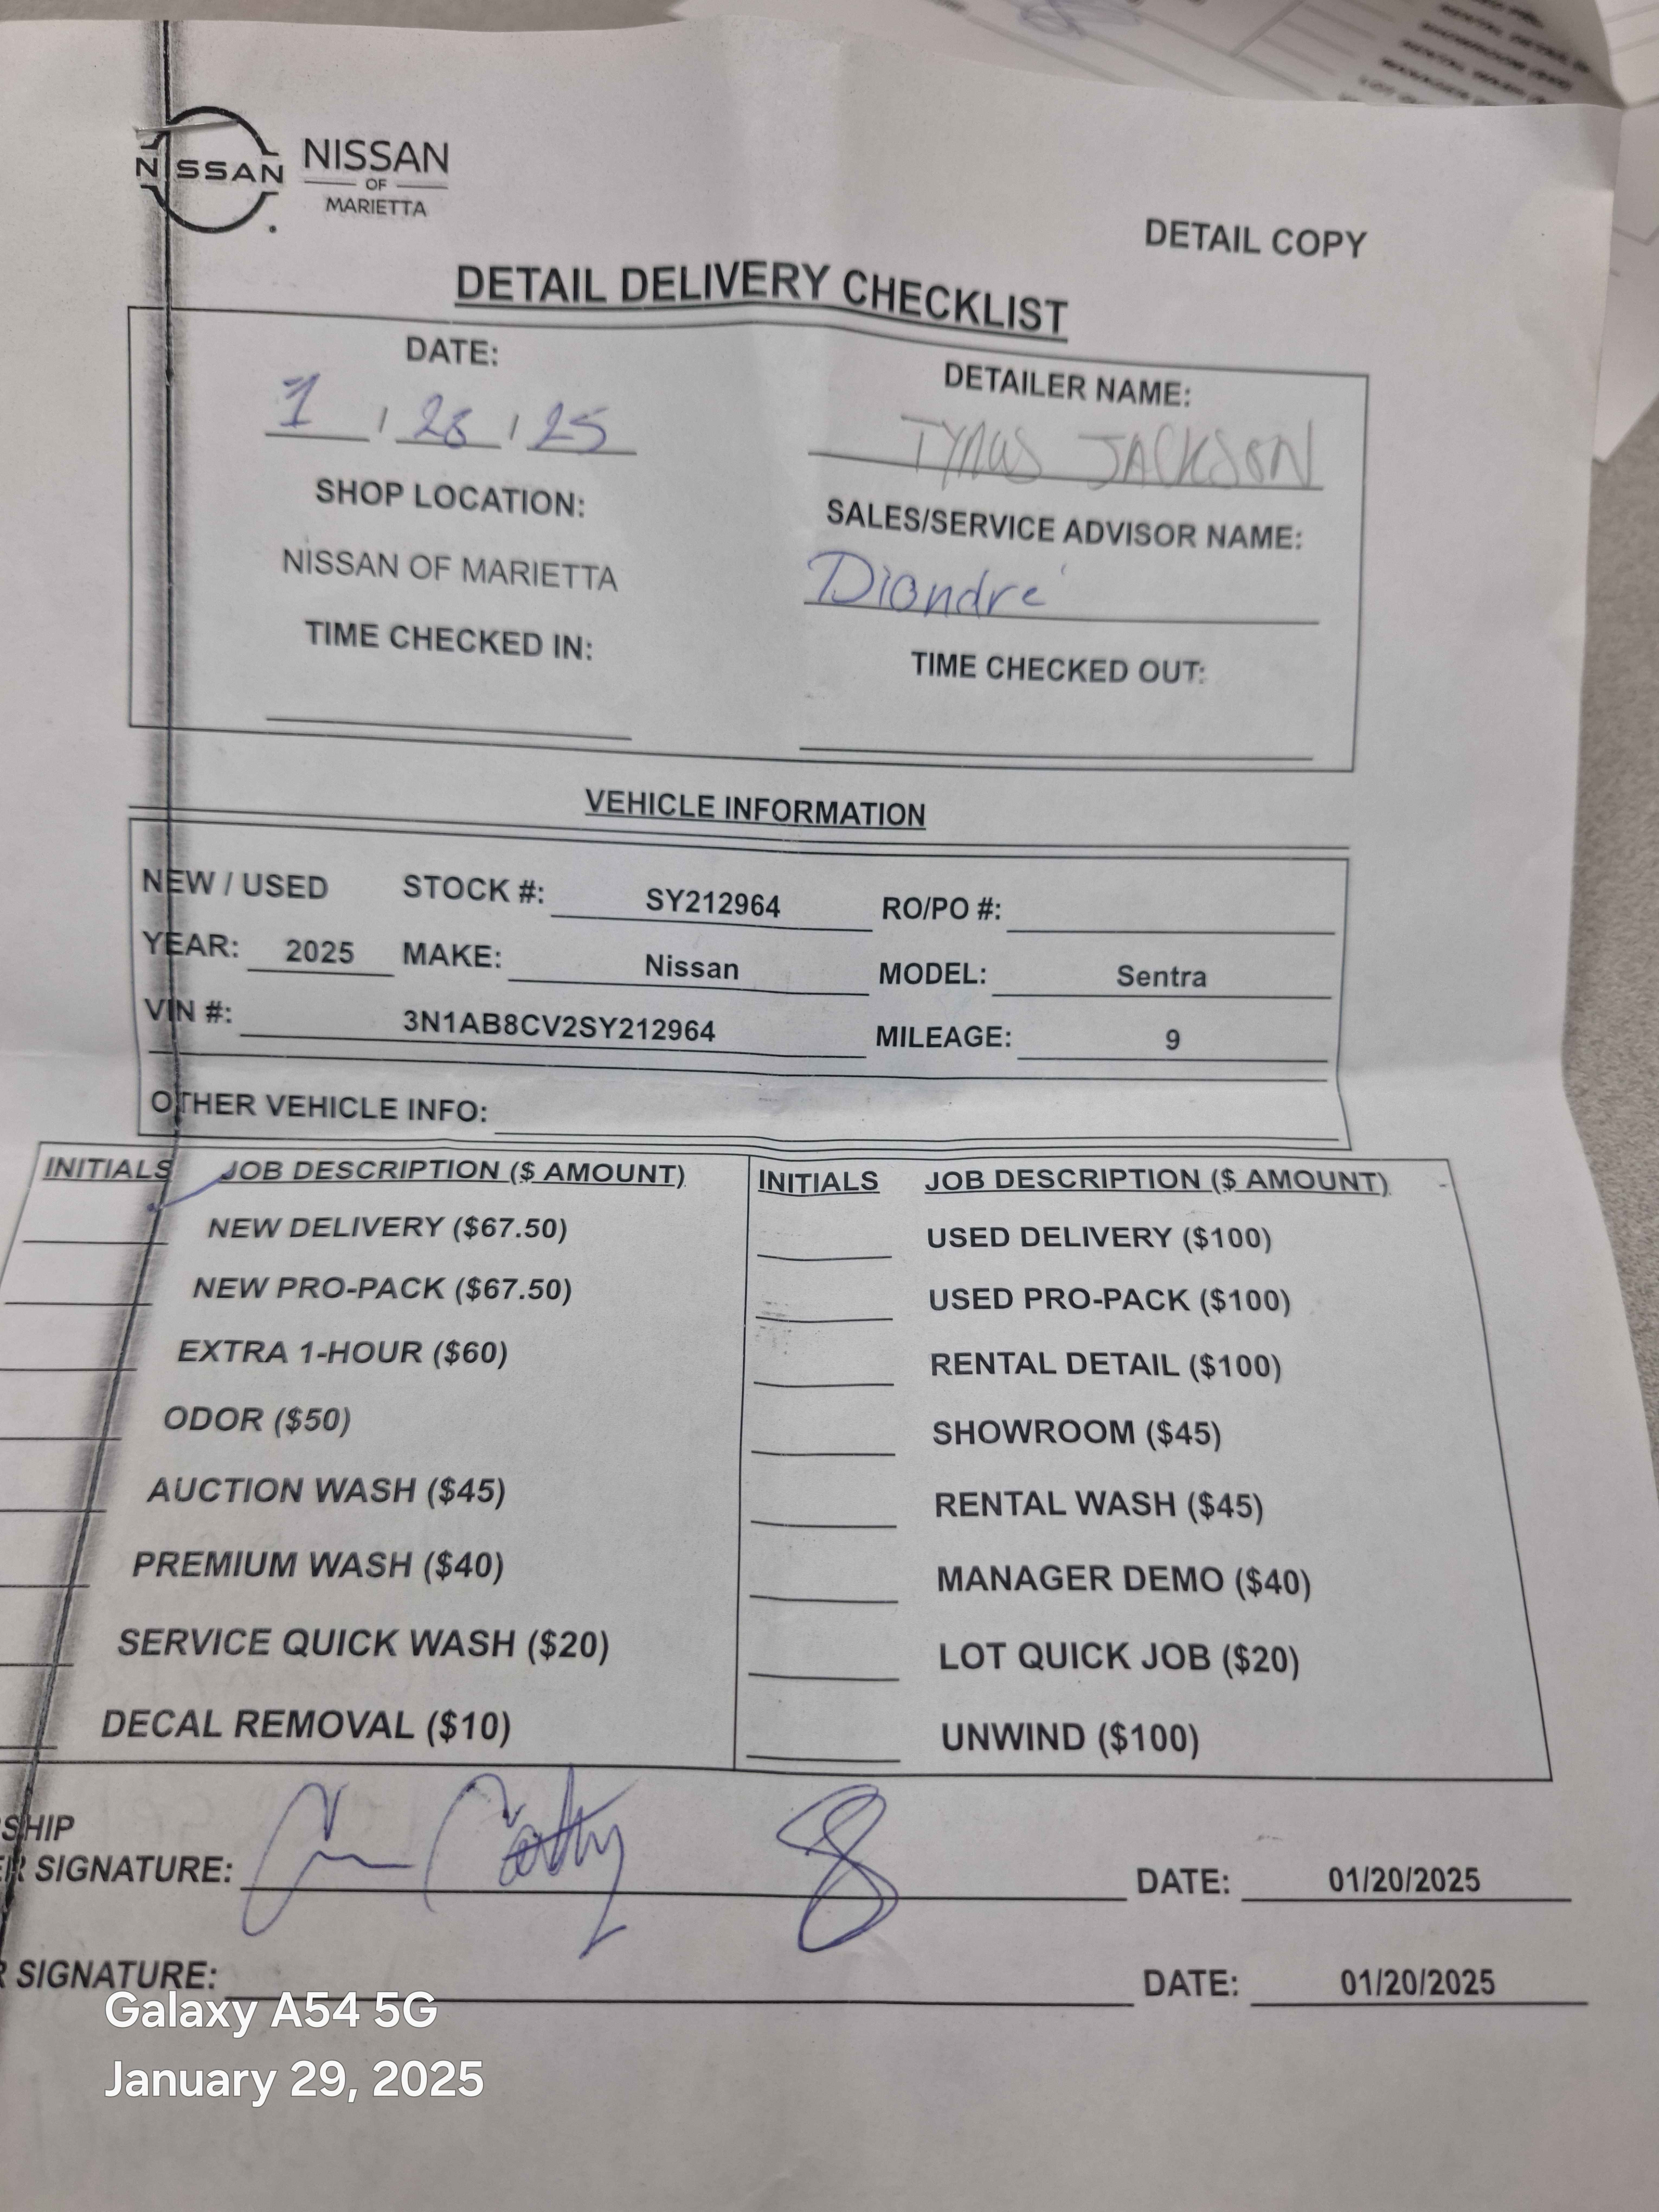 NISSAN NISSAN
OF
MARIETTA
DETAIL COPY
DETAIL DELIVERY CHECKLIST
DATE:
1 / 28 / 25
DETAILER NAME:
TYRUS JACKSON
SHOP LOCATION:
NISSAN OF MARIETTA
SALES/SERVICE ADVISOR NAME:
Diondre'
TIME CHECKED IN:
TIME CHECKED OUT:
VEHICLE INFORMATION
NEW / USED STOCK #: SY212964 RO/PO #:
YEAR: 2025 MAKE: Nissan MODEL: Sentra
VIN #: 3N1AB8CV2SY212964 MILEAGE: 9
OTHER VEHICLE INFO:
INITIALS JOB DESCRIPTION ($ AMOUNT) INITIALS JOB DESCRIPTION ($ AMOUNT)
NEW DELIVERY ($67.50) USED DELIVERY ($100)
NEW PRO-PACK ($67.50) USED PRO-PACK ($100)
EXTRA 1-HOUR ($60) RENTAL DETAIL ($100)
ODOR ($50) SHOWROOM ($45)
AUCTION WASH ($45) RENTAL WASH ($45)
PREMIUM WASH ($40) MANAGER DEMO ($40)
SERVICE QUICK WASH ($20) LOT QUICK JOB ($20)
DECAL REMOVAL ($10) UNWIND ($100)
SHIP
R SIGNATURE: DATE: 01/20/2025
R SIGNATURE: DATE: 01/20/2025
Galaxy A54 5G
January 29, 2025